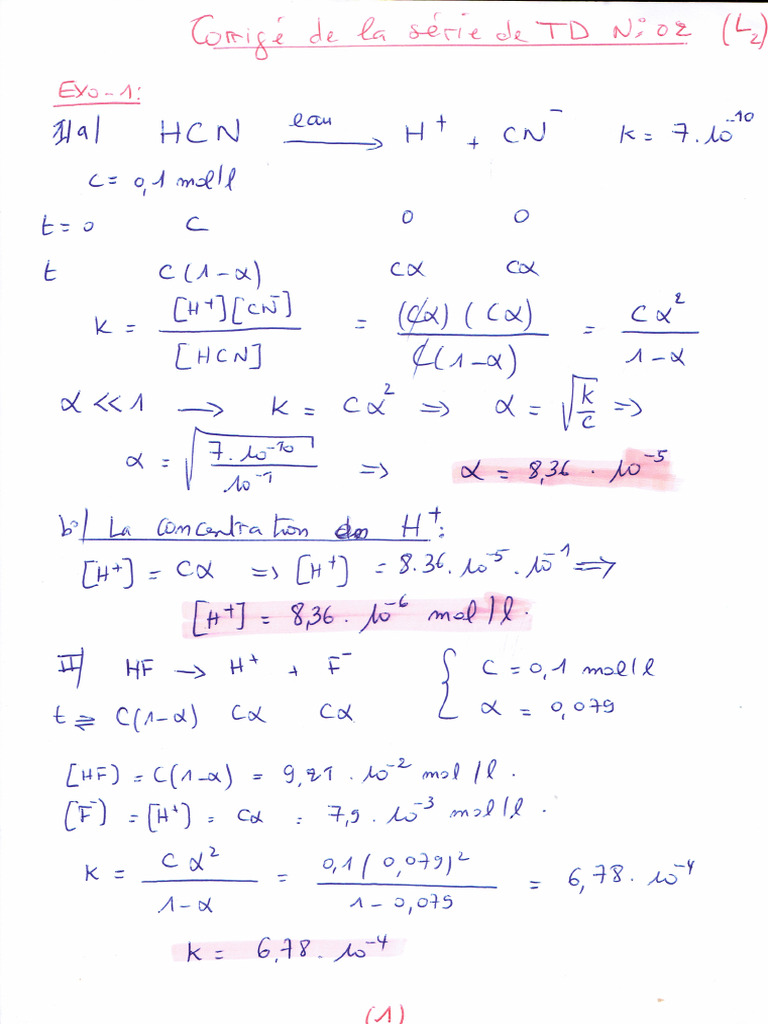 Corrigé de la série de TD N:02 (L2)
Exo-1:
I)a) HCN eau → H⁺ + CN⁻ k = 7.10⁻¹⁰
C = 0,1 mol/l
t=0 C 0 0
t C(1-α) Cα Cα
k = [H⁺][CN⁻] / [HCN] = (Cα)(Cα) / C(1-α) = Cα² / 1-α
α << 1 → k = Cα² ⇒ α = √(k/C) ⇒
α = √(7.10⁻¹⁰ / 10⁻¹) ⇒ α = 8,36 . 10⁻⁵
b) La concentration en H⁺:
[H⁺] = Cα ⇒ [H⁺] = 8.36.10⁻⁵.10⁻¹ ⇒
[H⁺] = 8,36 . 10⁻⁶ mol/l.
II) HF → H⁺ + F⁻ { C = 0,1 mol/l
t⇌ C(1-α) Cα Cα α = 0,079
[HF) = C(1-α) = 9,21 . 10⁻² mol/l.
[F⁻) = [H⁺) = Cα = 7,9 . 10⁻³ mol/l.
k = Cα² / 1-α = 0,1(0,079)² / 1-0,079 = 6,78 . 10⁻⁴
k = 6,78 . 10⁻⁴
(1)